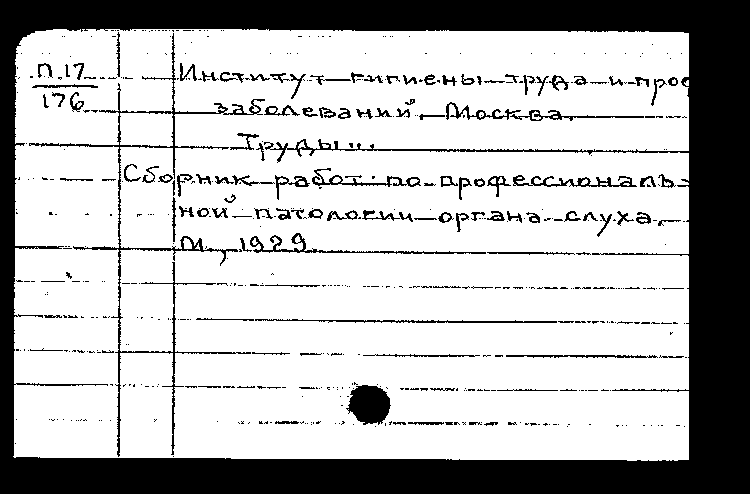 П.17
176
Институт гигиены труда и проф
заболеваний, Москва.
Труды...
Сборник работ по профессиональ-
ной патологии органа слуха.
М., 1929.